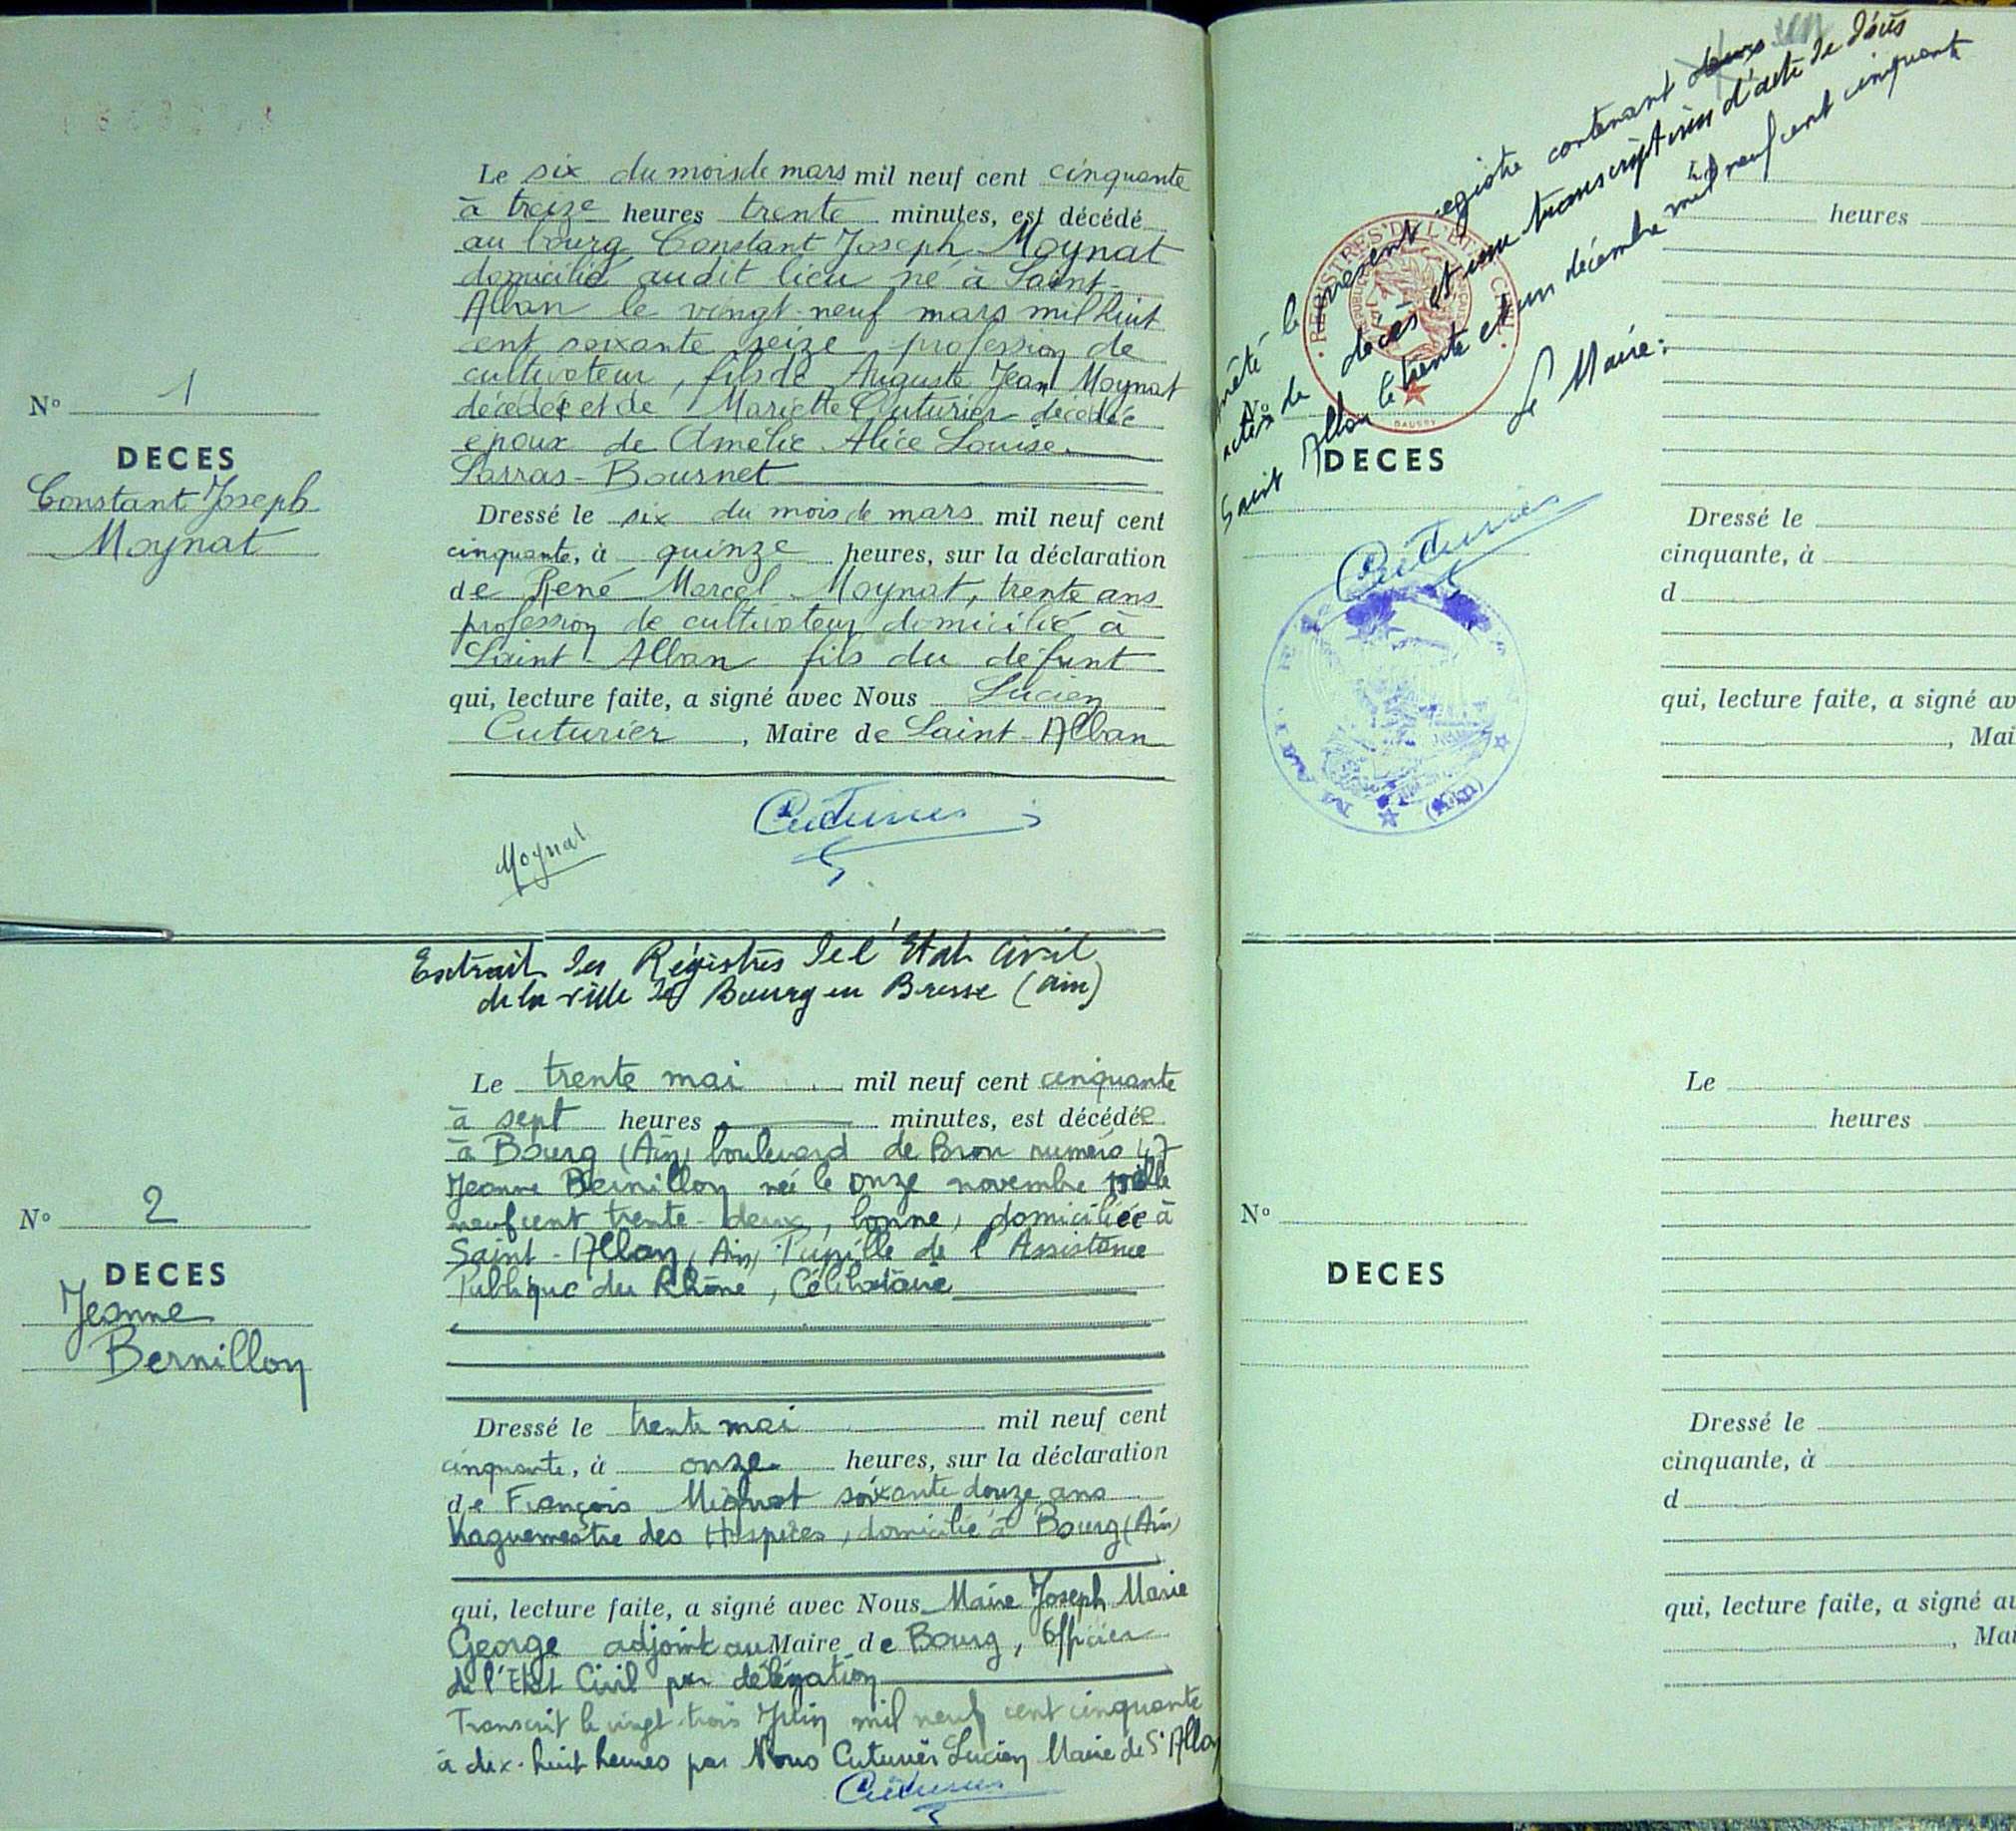 N° 1
DECES
Constant Joseph
Moynat
Le six du mois de mars mil neuf cent cinquante
à treize heures trente minutes, est décédé
au bourg Constant Joseph Moynat
domicilié audit lieu né à Saint-
Alban le vingt-neuf mars mil huit
cent soixante seize profession de
cultivateur, fils de Auguste Jean Moynat
décédé et de Mariette Cuturier décédée
époux de Amélie Alice Louise
Sarras-Bournet
Dressé le six du mois de mars mil neuf cent
cinquante, à quinze heures, sur la déclaration
de René Marcel Moynat, trente ans
profession de cultivateur domicilié à
Saint-Alban fils du défunt
qui, lecture faite, a signé avec Nous Lucien
Cuturier, Maire de Saint-Alban
Moynat
Cuturier
Extrait des Régistres de l'Etat Civil
de la ville de Bourg en Bresse (Ain)
N° 2
DECES
Jeanne
Bernillon
Le trente mai mil neuf cent cinquante
à sept heures minutes, est décédée
à Bourg (Ain) boulevard de Brou numéro 47
Jeanne Bernillon née le onze novembre mille
neuf cent trente-deux, bonne, domiciliée à
Saint-Alban, Ain, Pupille de l'Assistance
Publique du Rhône, Célibataire
Dressé le trente mai mil neuf cent
cinquante, à onze heures, sur la déclaration
de François soixante douze ans
Vaguemestre des Hospices, domicilié à Bourg (Ain)
qui, lecture faite, a signé avec Nous Marie Joseph Marie
George adjoint au Maire de Bourg, Officier
de l'Etat Civil par délégation
Transcrit le vingt-trois Juin mil neuf cent cinquante
à dix-huit heures par Nous Cuturier Lucien Maire de St Alban
Cuturier
le présent registre contenant deux un
actes de décès et une transcription d'acte de décès
Saint Alban le trente et un décembre mil neuf cent cinquante
Le Maire:
Cuturier
REGISTRES DE L'ETAT CIVIL
MAIRIE
(Ain)
N°
DECES
heures
Dressé le
cinquante, à
d
qui, lecture faite, a signé av
, Mai
N°
DECES
Le
heures
Dressé le
cinquante, à
d
qui, lecture faite, a signé au
, Mai